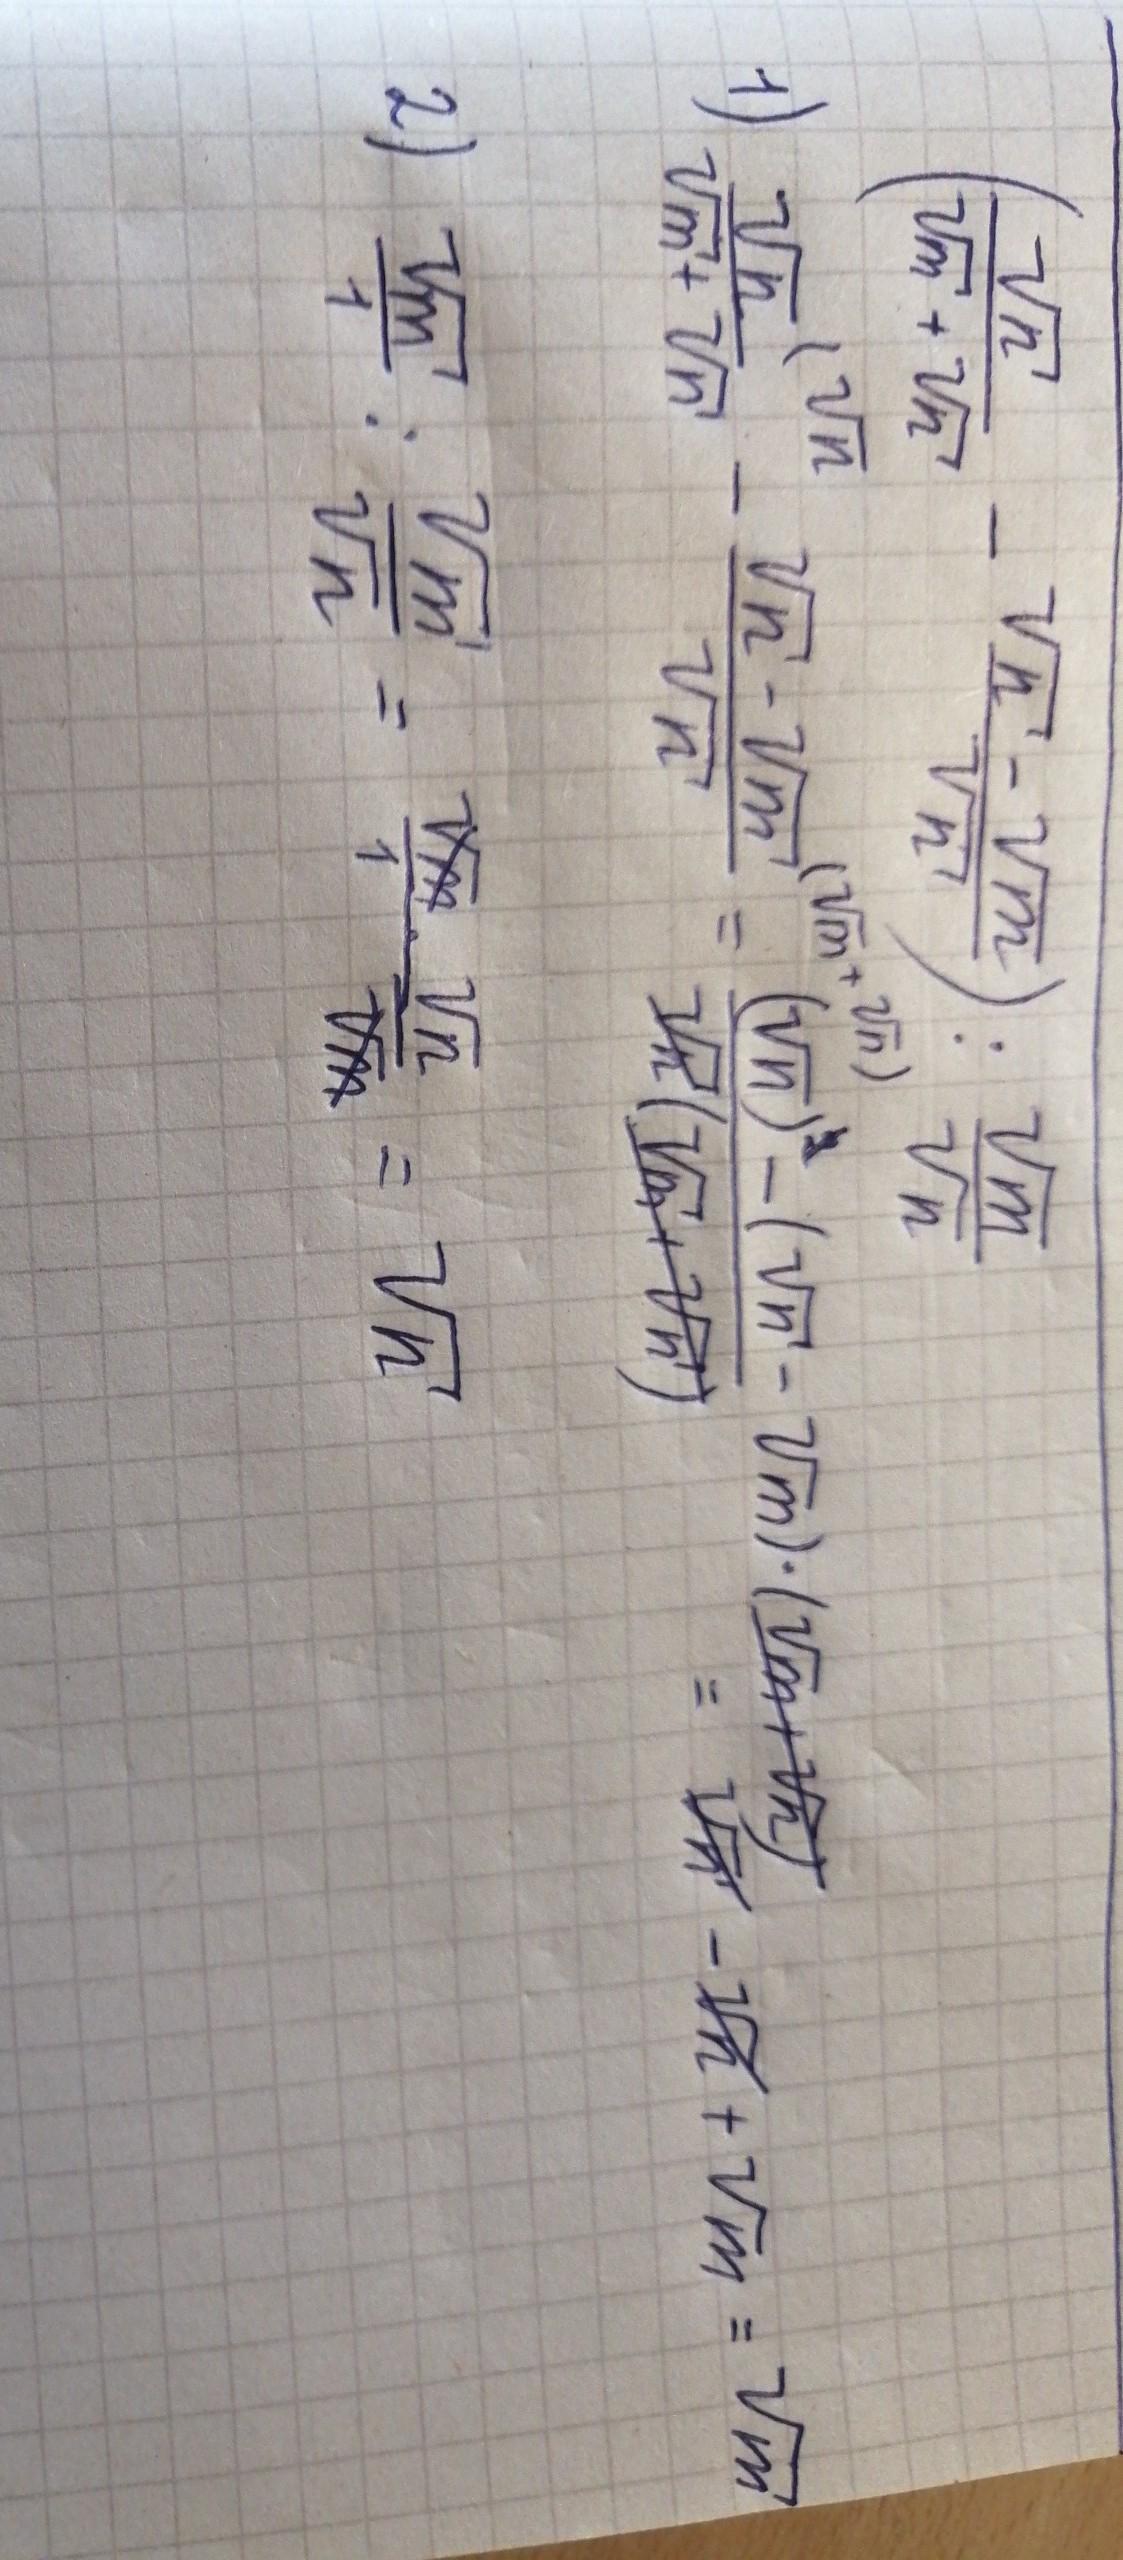 (√n/(√m + √n) - (√n - √m)/√n) : √m/√n
1) √n/(√m + √n) (√n - (√n - √m)/√n (√m + √n) = ((√n)² - (√n - √m)·(√m + √n))/(√n(√m + √n)) = √n - √n + √m = √m
2) √m/1 : √m/√n = √m/1 · √n/√m = √n